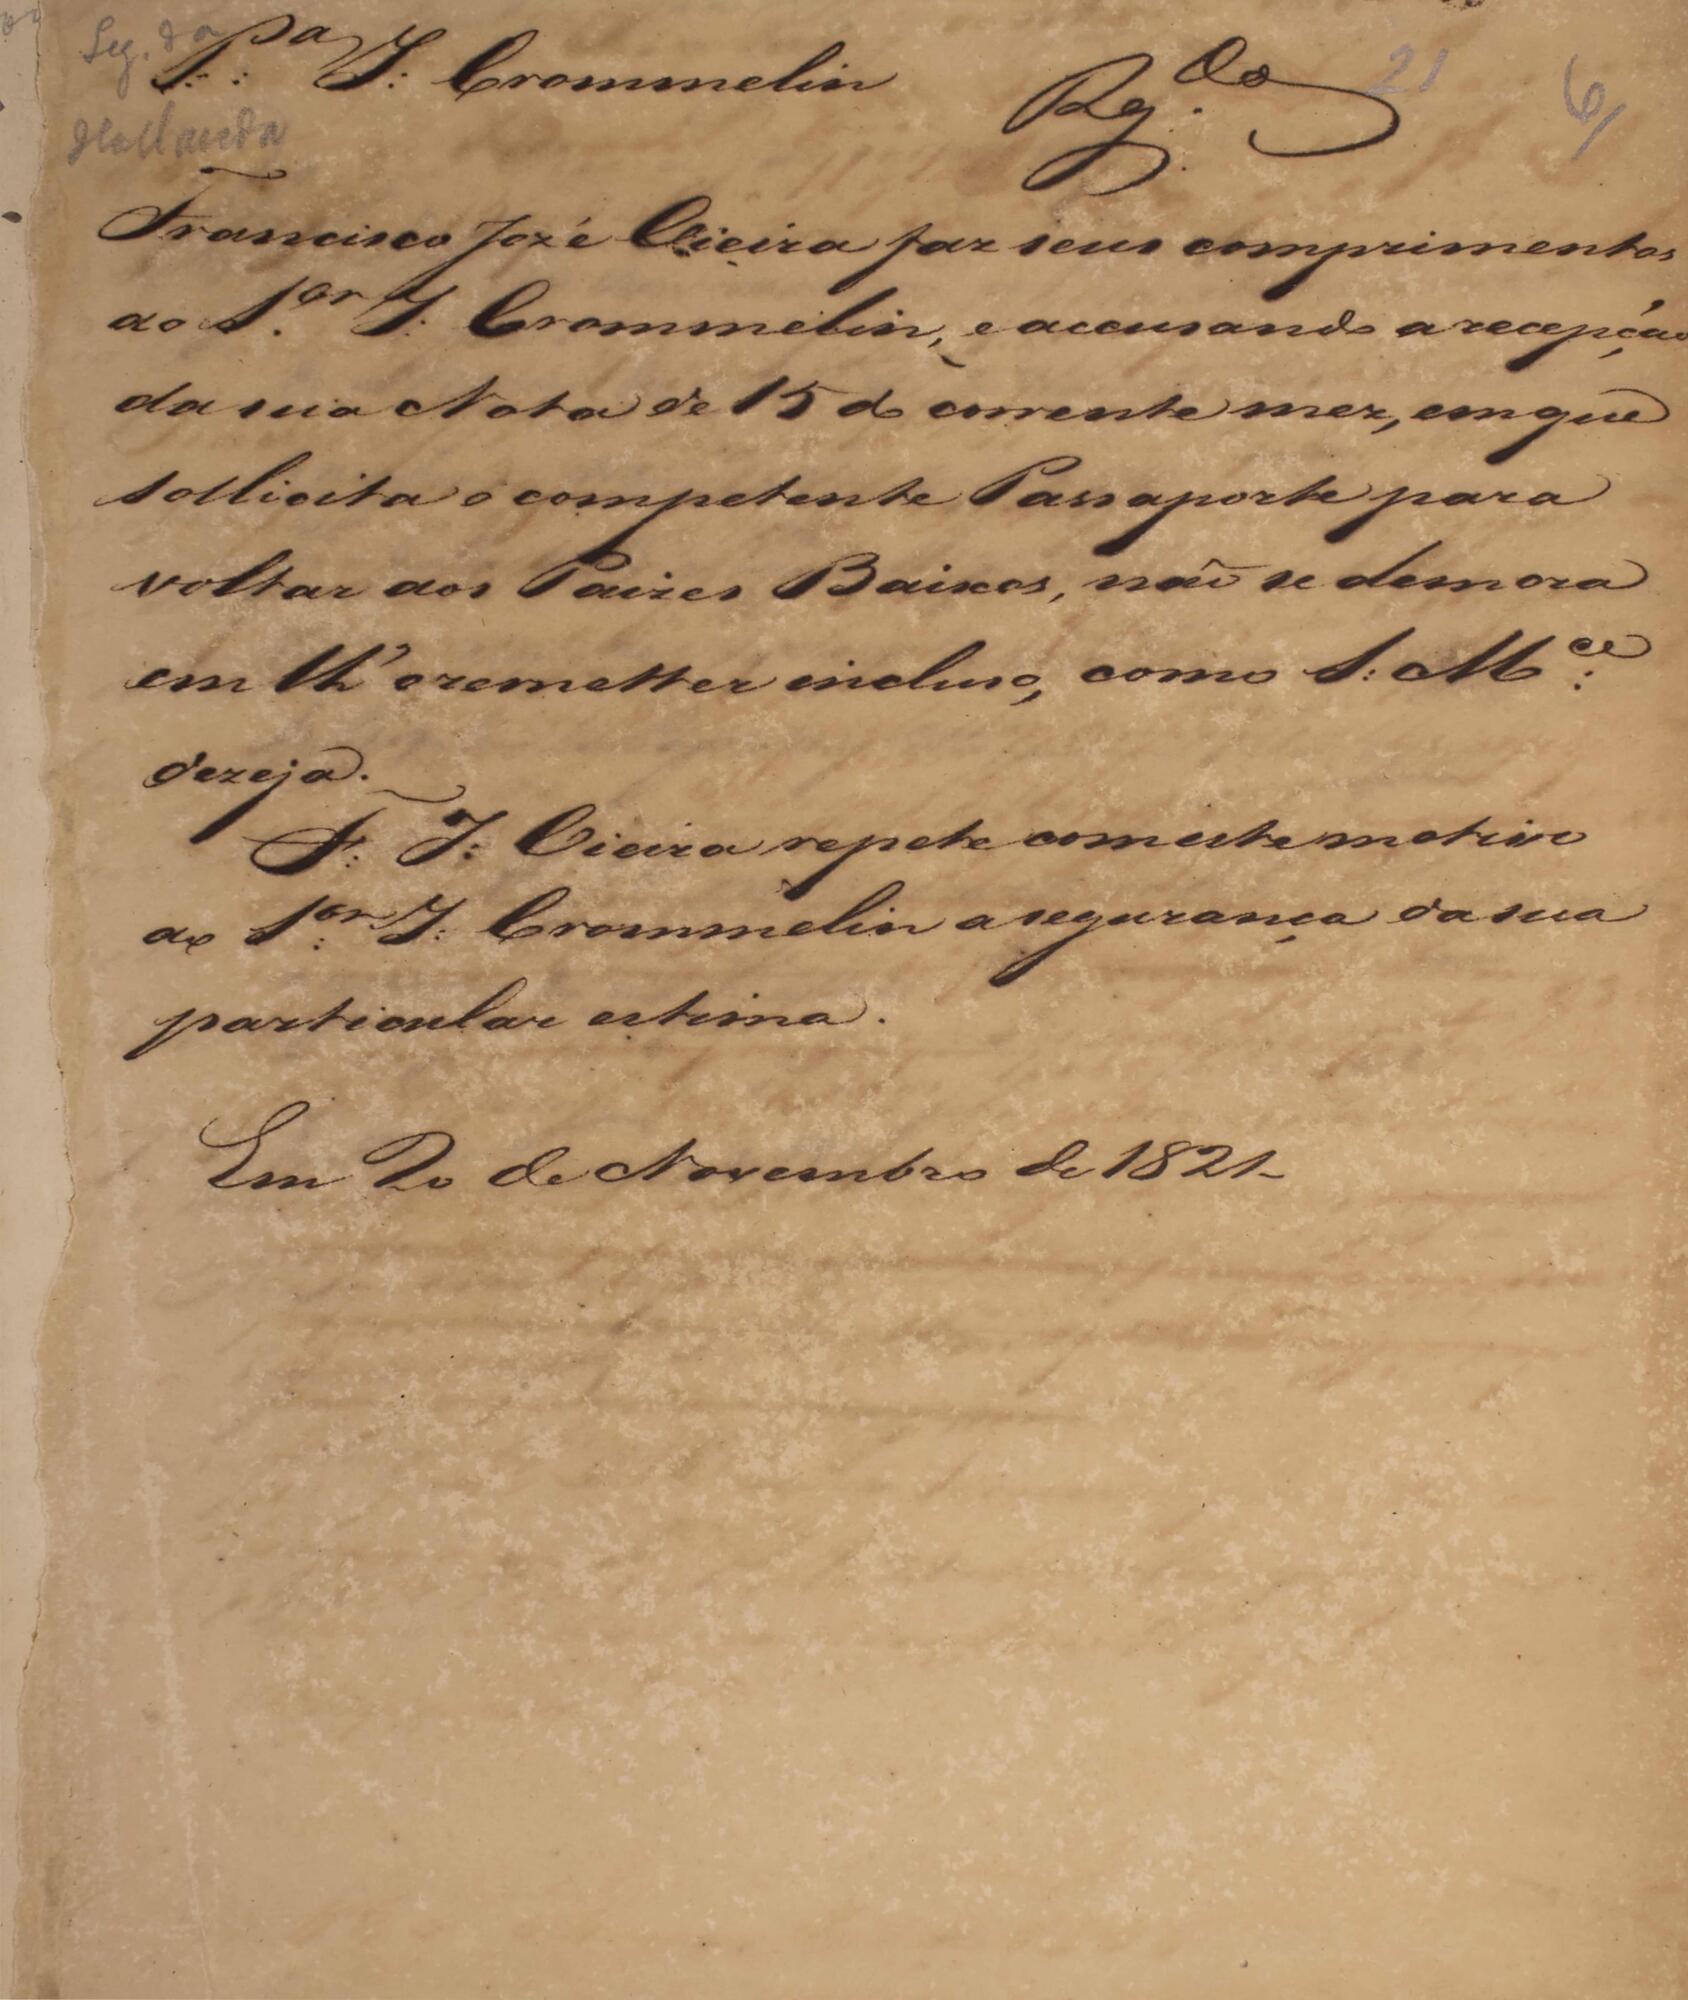 Leg. da
Hollanda
P.ª J: Crommelin
Rg.do
21
6/
Francisco Jozé Vieira faz seus comprimentos
ao S.or J: Crommelin, e accusando a recepção
da sua Nota de 15 do corrente mez, em que
sollicita o competente Passaporte para
voltar aos Paizes Baixos, não se demora
em lh'o remetter incluso, como S: M.ce
dezeja.
F: J: Vieira repete com este motivo
ao S.or J: Crommelin a segurança da sua
particular estima.
Em 20 de Novembro de 1821